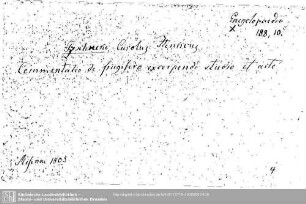 Encyclopaedie
188, 10.
Carolus Henricus
Commentatio de frugifero excerpendi studio et arte
Misenae 1803
4
Sächsische Landesbibliothek -
Staats- und Universitätsbibliothek Dresden